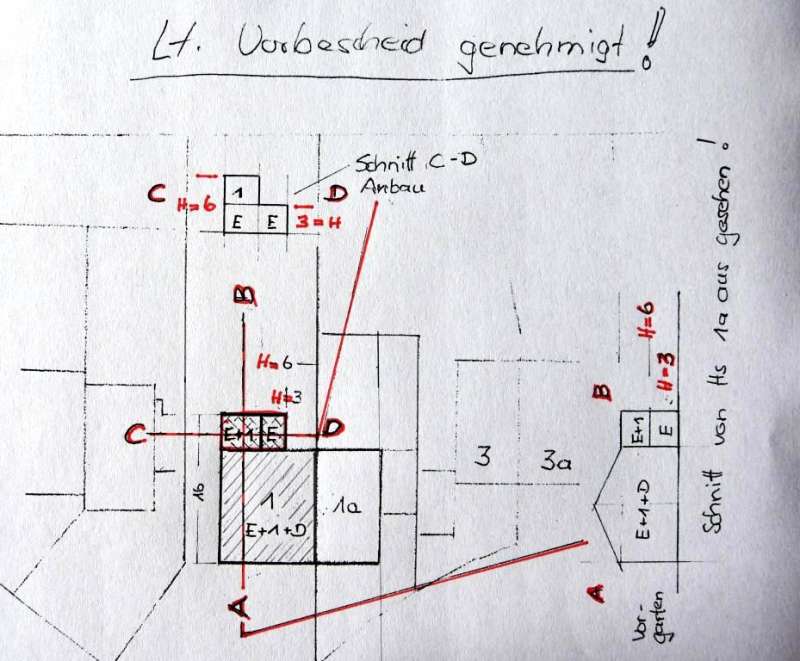 Lt. Vorbescheid genehmigt!
Schnitt C-D
Anbau
C
1
D
H=6
E
E
3=H
B
H=6
H=3
C
E+1
E
D
16
1
E+1+D
1a
3
3a
A
B
H=6
H=3
E+1
E
E+1+D
A
Vor-
garten
Schnitt von Hs 1a aus gesehen!